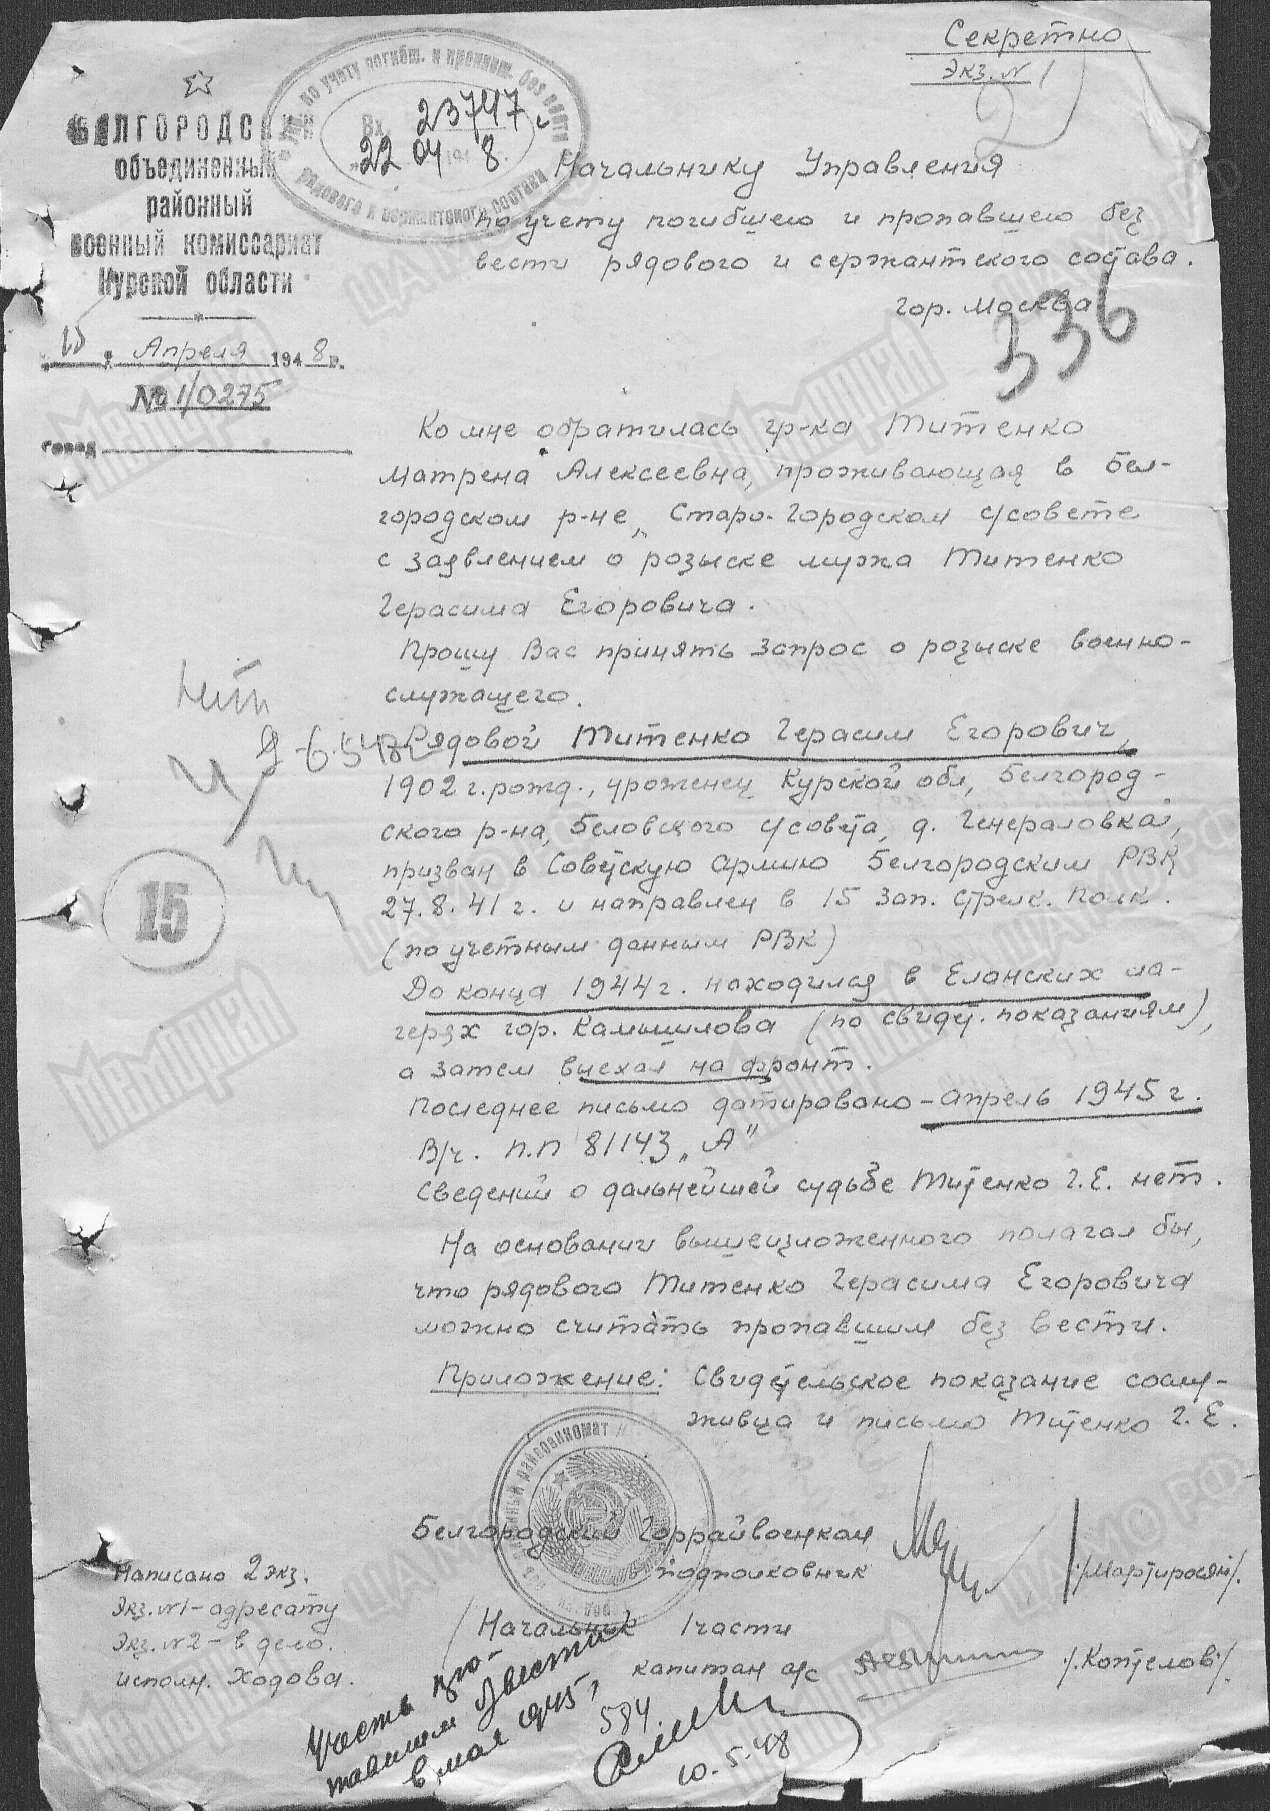 Секретно
Экз. N 1
БЕЛГОРОДСК
объединенный
районный
военный комиссариат
Курской области
по учету погибш. и пропавш. без вести
рядового и сержантского состава
Вх. 23747с
"22 04 1948.
Начальнику Управления
по учету погибшего и пропавшего без
вести рядового и сержантского состава.
гор. Москва
336
Апреля 1948г.
№ 1/0275
город
Ко мне обратилась гр-ка Титенко
Матрена Алексеевна, проживающая в Бел-
городском р-не, Старо-Городском с/совете
с заявлением о розыске мужа Титенко
Герасима Егоровича.
Прошу Вас принять запрос о розыске военно-
служащего.
Рядовой Титенко Герасим Егорович,
1902 г. рожд., уроженец Курской обл, Белгород-
ского р-на, Беловского с/совета, д. Генераловка,
призван в Советскую Армию Белгородским РВК
27.8.41 г. и направлен в 15 зап. стрелк. полк.
(по учетным данным РВК)
До конца 1944 г. находился в Еланских ла-
герях гор. Камышлова (по свидет. показаниям),
а затем выехал на фронт.
Последнее письмо датировано - апрель 1945 г.
В/ч. п.п 81143 „А"
Сведений о дальнейшей судьбе Титенко Г.Е. нет.
На основании вышеизложенного полагал бы,
что рядового Титенко Герасима Егоровича
можно считать пропавшим без вести.
Приложение: Свидетельское показание сослу-
живца и письмо Титенко Г.Е.
15
Белгородский Горрайвоенком
подполковник /Мартиросян/.
Начальник 1 части
капитан а/с /.Коптелов/.
Написано 2 экз.
Экз. N1 - адресату
Экз. N2 - в дело.
исполн. Ходова.
в мае 1945,
584.
10.5.48